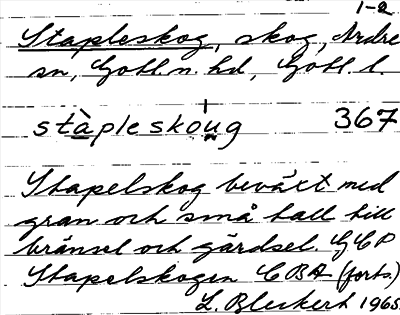 1-2
Stapleskog, skog, Ardre
sn, Gotl. n. hd, Gotl. l.
stàpleskoug 367
Stapelskog beväxt med
gran och små tall till
bränsel och gärdsel. GCP
Stapelskogen CBA (forts.)
L. Bleckert 1965